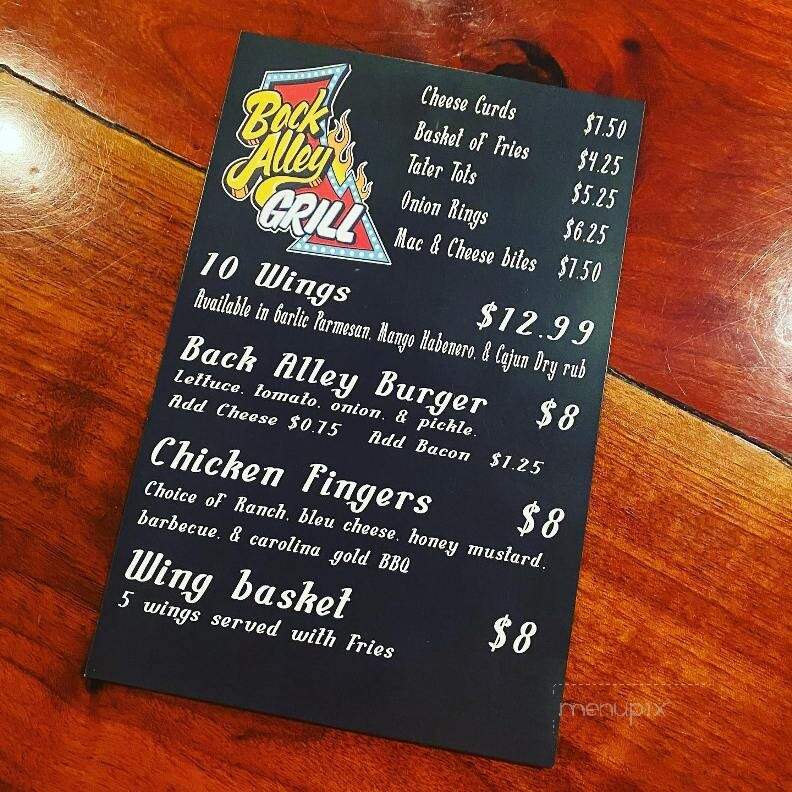 Back
Alley
GRILL
Cheese Curds $7.50
Basket of Fries $4.25
Tater Tots $5.25
Onion Rings $6.25
Mac & Cheese bites $7.50
10 Wings $12.99
Available in Garlic Parmesan, Mango Habenero, & Cajun Dry rub
Back Alley Burger $8
Lettuce, tomato, onion, & pickle.
Add Cheese $0.75 Add Bacon $1.25
Chicken Fingers $8
Choice of Ranch, bleu cheese, honey mustard,
barbecue, & carolina gold BBQ
Wing basket $8
5 wings served with Fries
menupix